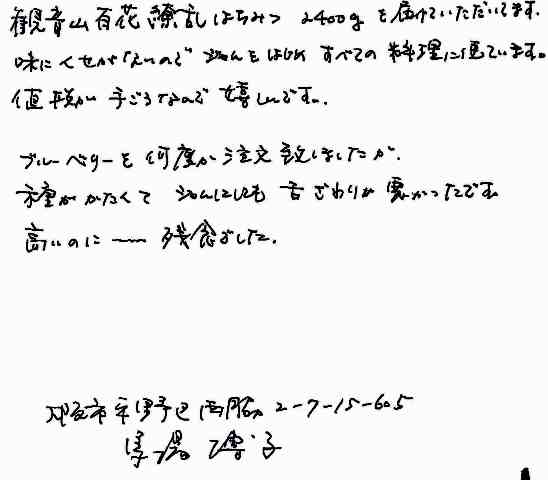 観音山百花繚乱はちみつ 2400gを届けていただいてます。
味にくせがないので ジャムをはじめ すべての料理に使ています。
値段が手ごろなので嬉しいです。
ブルーベリーを何度か注文致しましたが、
種がかたくて ジャムにしても舌ざわりが悪かったです
高いのに ― 残念でした。
大阪市平野区西脇 2-7-15-605